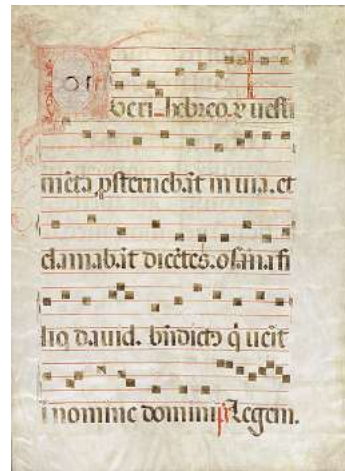 ueri hebreoꝝ uesti
mēta ꝓsternebāt in uia. et
clamabāt dicētes. osāna fi
lio dauid. bn̄dictꝰ q̇ uēit
ī nomine domini p̄s Legem.